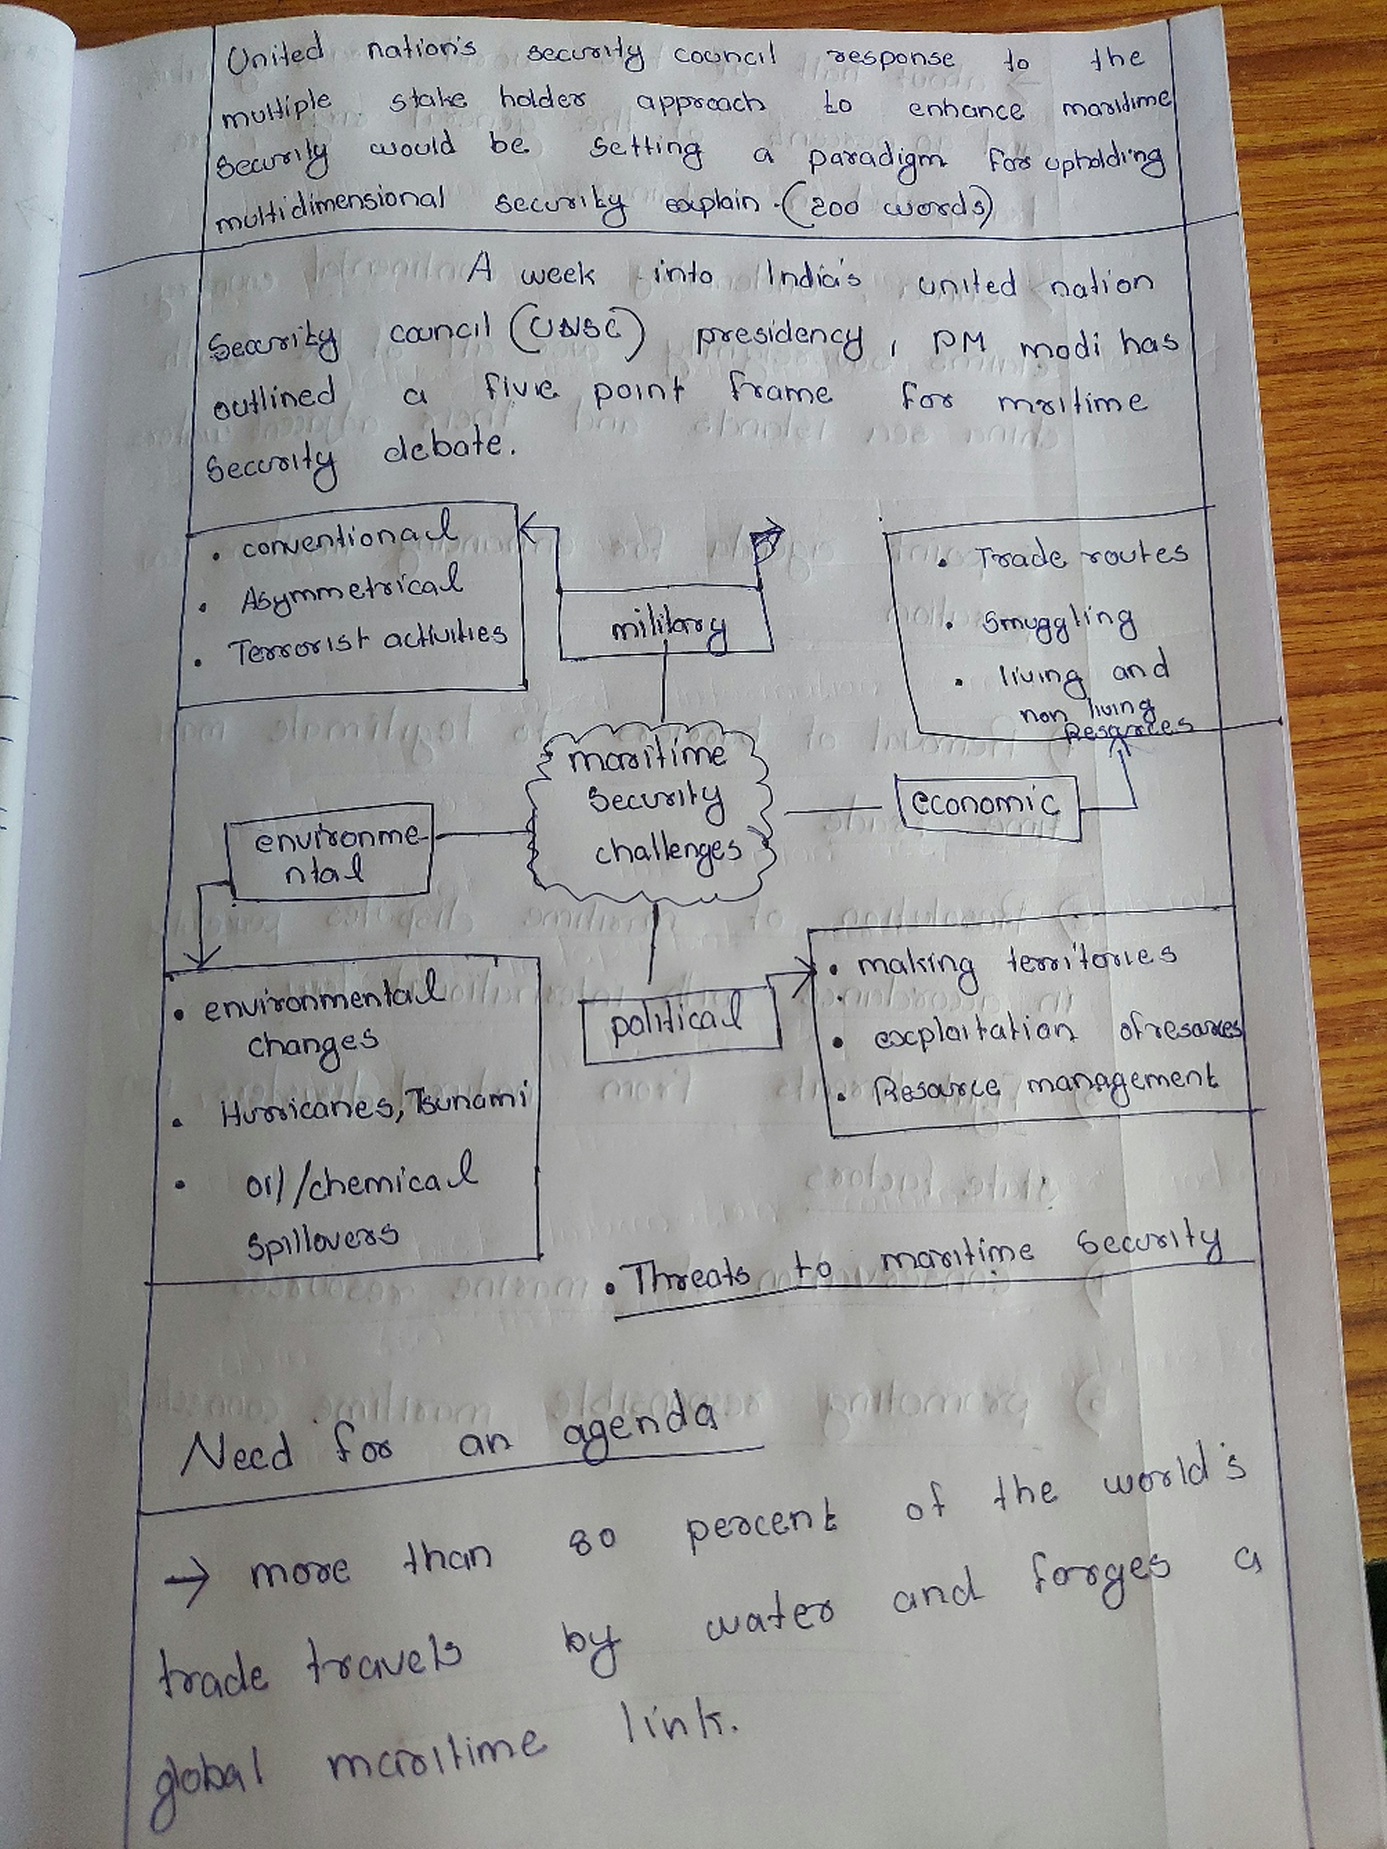 United nation's security council response to the
multiple stake holder approach to enhance maritime
Security would be setting a paradigm for upholding
multidimensional security explain. (200 words)
A week into India's united nation
Security council (UNSC) presidency, PM modi has
outlined a five point frame for maritime
Security debate.
• conventional
• Asymmetrical
• Terrorist activities
military
• Trade routes
• Smuggling
• living and
non living
Resources
maritime
Security
challenges
economic
environme-
ntal
• environmental
changes
• Hurricanes, Tsunami
• oil/chemical
Spillovers
political
• making territories
• exploitation of resources
• Resource management
• Threats to maritime Security
Need for an agenda
→ more than 80 percent of the world's
trade travels by water and forges a
global maritime link.